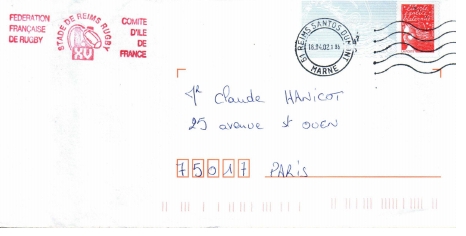 FEDERATION
FRANÇAISE
DE RUGBY
STADE DE REIMS RUGBY
XV
COMITE
D'ILE
DE
FRANCE
51 REIMS SANTOS DU
MARNE
Mr Claude HANICOT
25 avenue st OUEN
75017 PARIS